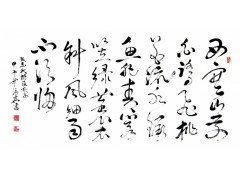 西塞山前
白鹭飞桃
花流水鳜
鱼肥青箬
笠绿蓑衣
斜风细雨
不须归